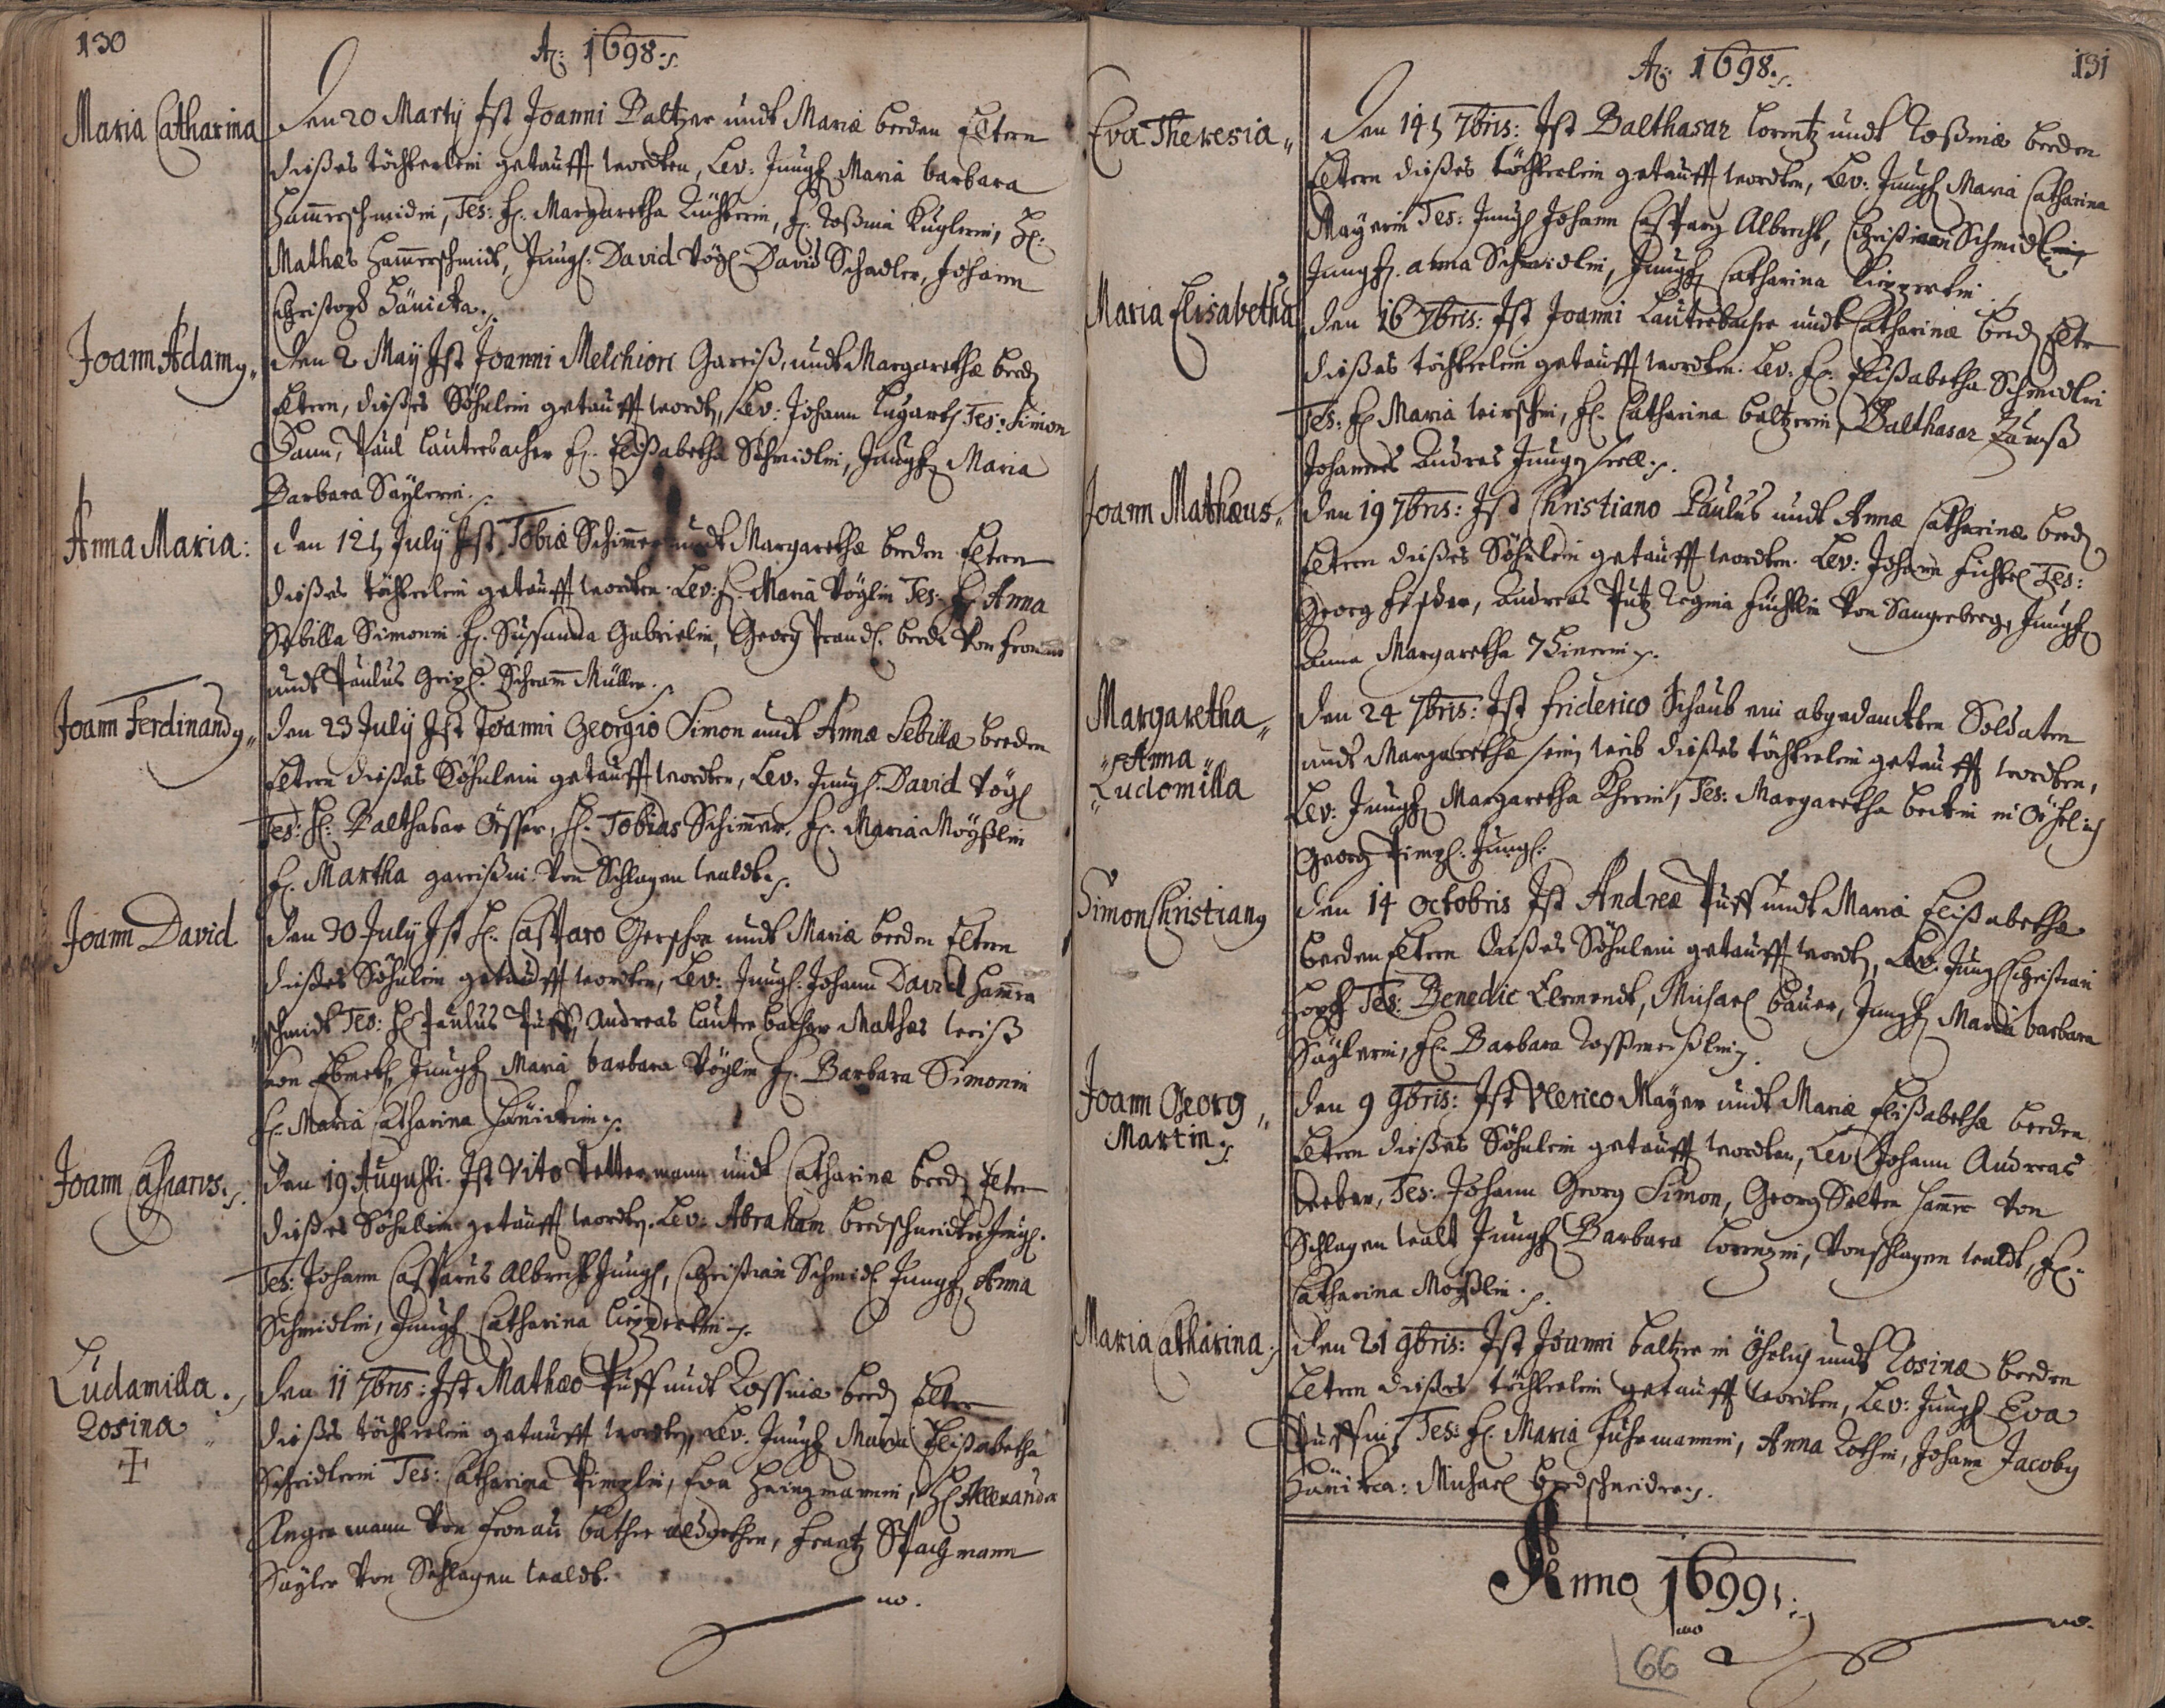 130
A: 1698.
Maria Catharina
Den 20 Martÿ Ist Joanni Baltzer undt Mariæ beeden Eltern
dießes töchterlein getaufft worden, Lev: Jungf. Maria barbara
Hammerschmidin, Tes: fr. Margaretha, fr. Roßina Kuglerin, H:
Mathes Hammerschmidt, Jungg. David Vögl David Schadler, Johann
Christoph Hänicka.
Joann Adamg
den 2 Maÿ Ist Joanni Melchiori Garriß, undt Margarethæ beed
Eltern, dießes Söhnlein getaufft wordt, Lev: Johann Lugart Tes: Simon
Dann, Paul Lauterbacher fr. Elißabetha Schmidlin, Jungf Maria
Barbara Saÿlerin.
Anna Maria:
den 12 July Ist Tobiæ Schimmer undt Margarethæ beeden Eltern
dießes töchterlein getaufft worden. Lev: fr. Maria Vöglin Tes: fr Anna
Sebilla Simonin fr. Susanna Gabrielin, Georg Prandl. beede Von fronau
undt Paulus Müller.
Joann Ferdinandg
den 23 July Ist Joanni Georgio Simon undt Annæ Sebillæ beeden
Eltern dießes Söhnlein getaufft worden, Lev. Jungg. David Vögl
Tes: H: Balthasar, H. Tobias Schimmer, fr. Maria Möÿßlin
fr. Martha garrißin. Von Schlagen waldt.
Joann David
den 30 July Ist H: Casparo Gerscher undt Mariæ beeden Eltern
dießes Söhnlein getaufft worden, Lev: Jungg. Johann David Hammer
schmidt Tes: H: Paulus Puff, Andreas Lauterbacher Mathes weiß
von, Jungf Maria barbara Vöglin fr. Barbara Simonin
fr. Maria Catharina Hänickin.
Joann Casparus.
den 19 Augusti. Ist Vito Pettermann undt Catharinæ beed Eltern
dießes Söhnlein getaufft worden. Lev: Abraham bredschneider Jungg.
Tes: Johann Casparus Albrecht Jungg, Christian Schmidl. Jungf Anna
Schmidlin, Jungf Catharina Lippertin.
Ludamilla.
Rosina
den 11 7bris: Ist Mathæo Puff undt Rossinæ beed Eltern
dießes töchterlein getaufft worden, Lev. Jungf Maria Elißabetha
Schridlerin Tes: Catharina Pimplin, Eva Heinzmannin, H: Allexander
Angermann Von fronau, Frantz Spachmann
Saÿler Von Schlagen waldt.
131
A: 1698.
Eva Theresia
Den 14 7bris: Ist Balthasar Lorentz undt Roßinæ beeden
Eltern dießes töchterlein getaufft worden, Lev: Jungf Maria Catharina
Maÿerin Tes: Jungg Johann Casparg Albrecht, Christian Schmidl
Jungf. anna Schmidlin, Jungf Catharina Lippertin.
Maria Elisabetha
den 16 7bris: Ist Joanni Lauterbacher undt Catharinæ beed Eltr
dießes töchterlein getaufft worden. Lev. fr. Elißabetha Schmidlin
Tes: fr Maria, fr. Catharina baltzerin, Balthasar
Johannes Andreas Junggsell.
Joann Mathæus
den 19 7bris: Ist Christiano Paulus undt Annæ Catharinæ beed
Eltern dießes Söhnlein getaufft worden. Lev: Johann Füchtl Tes:
Georg, Andreas Putz Regina Füchtlin Von Sangerberg, Jungf
Anna Margaretha
Margaretha
Anna
Ludomilla
den 24 7bris: Ist friderico Schaub ein abgedanckten Soldaten
undt Margarethæ sein weib dießes töchterlein getaufft worden,
Lev: Jungf Margaretha, Tes: Margaretha beckin
Georg Pimpl. Jungg:
Simon Christiang
den 14 Octobris Ist Andreæ Puff undt Mariæ Elißabethæ
beeden Eltern dießes Söhnlein getaufft wordt, Lev. Jungg Christian
Tes: Benedic, Michael bauer, Jungf Maria barbara
Saÿlerin, fr. Barbara Rossmeißlin.
Joann Georg
Martin.
den 9 9bris: Ist Vlerico Maÿer undt Mariæ Elißabethæ beeden
Eltern dießes Söhnlein getaufft worden, Lev Johann Andreas
Tes: Johann Georg Simon, Georg Von
Schlagen walt Jungf Barbara Lorenzin, Von schlagen waldt, fr.
Catharina Möÿßlin.
Maria Catharina.
den 21 9bris: Ist Joanni baltzer in undt Rosinæ beeden
Eltern dießes töchterlein getaufft worden, Lev: Jungf Eva
Puffin, Tes: fr. Maria Fuhrmannin, Anna Rothin, Johann Jacobg
Hänicka: Michael bredschneider.
Anno 1699
66